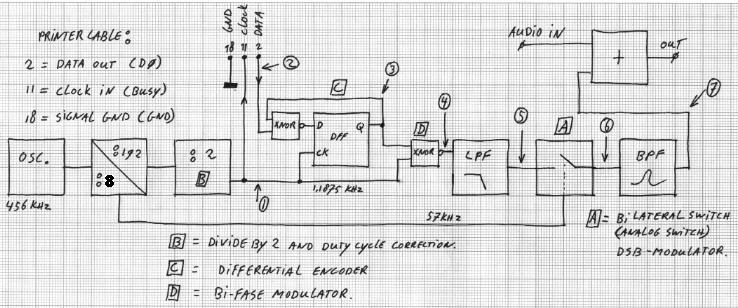 PRINTER LABLE:
2 = DATA OUT (DØ)
11 = CLOCK IN (BUSY)
18 = SIGNAL GND (GND)
GND
CLOCK
DATA
18 11 2
②
③
C
XNOR
D DFF Q
CK
④
D
XNOR
LPF
⑤
A
⑥
BPF
⑦
AUDIO IN
+
OUT
OSC.
456 KHZ
:192
:8
:2
B
①
1,1875 KHZ
57KHZ
A = BiLATERAL SWITCH
(ANALOG SWITCH)
DSB-MODULATOR.
B = DIVIDE BY 2 AND DUTY CYCLE CORRECTION.
C = DIFFERENTIAL ENCODER
D = Bi-FASE MODULATOR.